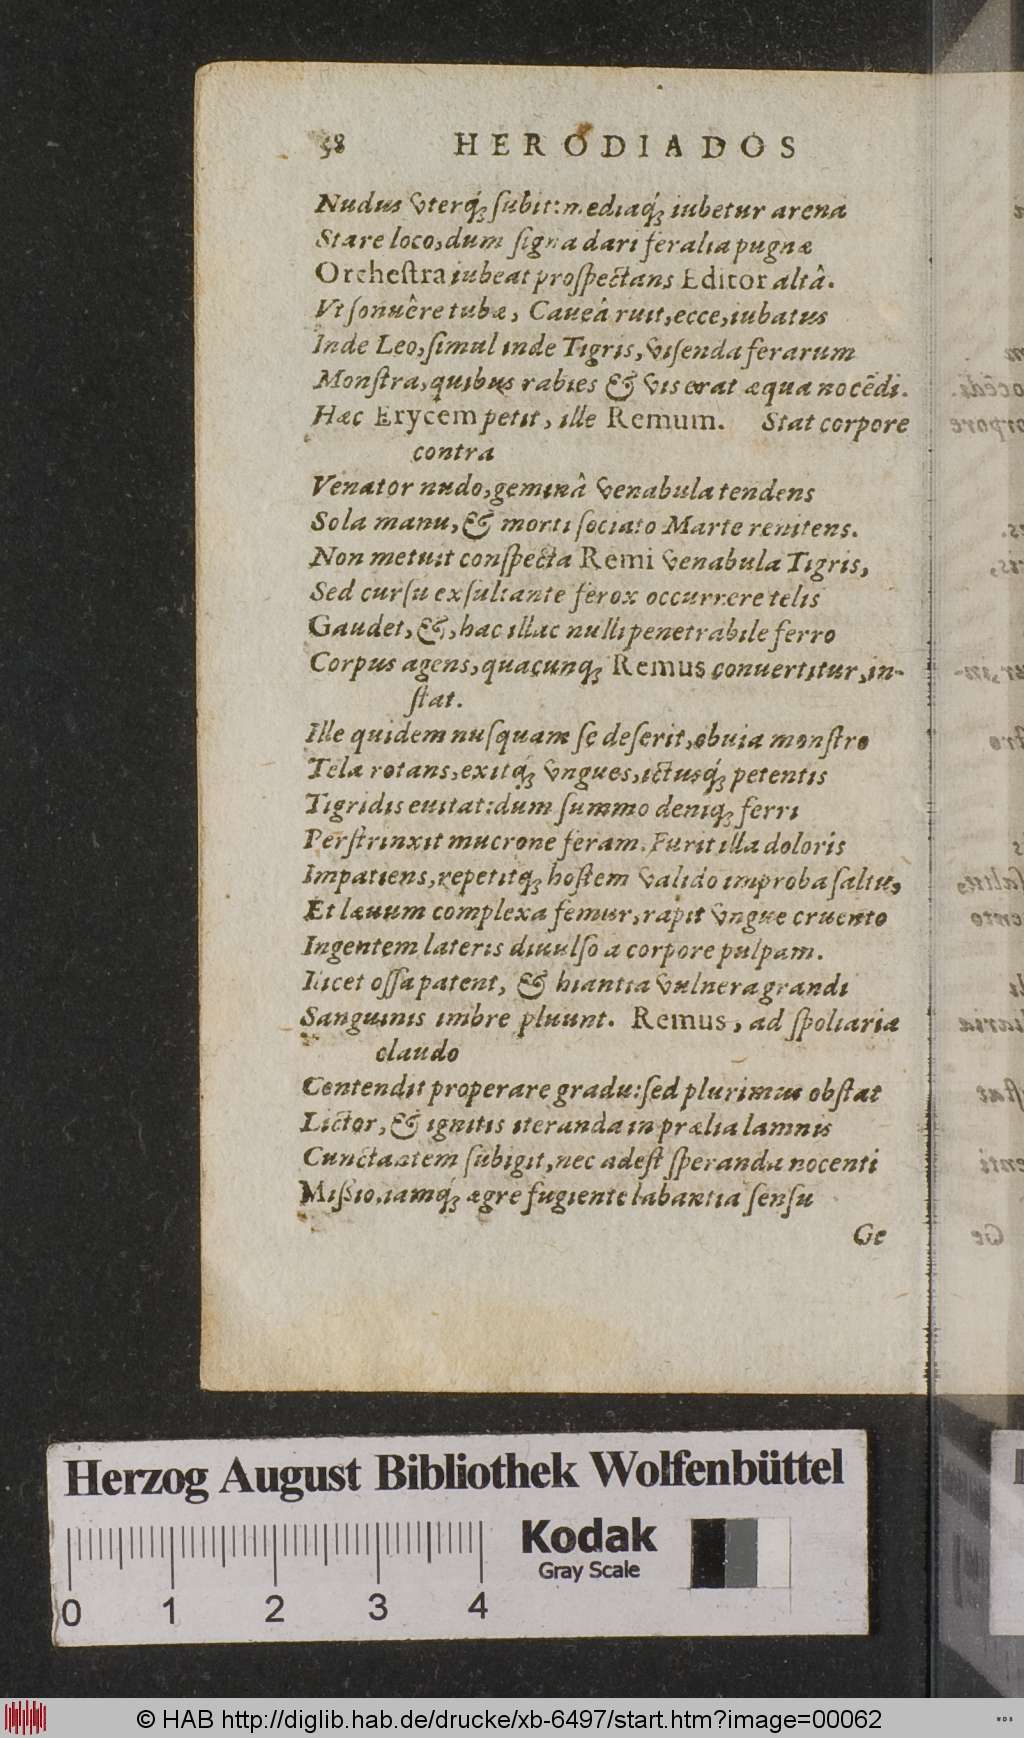 58 HERODIADOS
Nudus vterq́ꝫ ſubit: mediaq́ꝫ iubetur arena
Stare loco, dum ſigna dari feralia pugnæ
Orcheſtra iubeat proſpectans Editor altâ.
Vt ſonuêre tubæ, Caueâ ruit, ecce, iubatus
Inde Leo, ſimul inde Tigris, viſenda ferarum
Monſtra, quibus rabies & vis erat æqua nocẽdi.
Hæc Erycem petit, ille Remum. Stat corpore
contra
Venator nudo, geminâ venabula tendens
Sola manu, & morti ſociato Marte renitens.
Non metuit conſpecta Remi venabula Tigris,
Sed curſu exſultante ferox occurrere telis
Gaudet, &, hac illac nulli penetrabile ferro
Corpus agens, quacunqꝫ Remus conuertitur, in-
ſtat.
Ille quidem nuſquam ſe deſerit, obuia monſtro
Tela rotans, exitq́ꝫ vngues, ictusq́ꝫ petentis
Tigridis euitat: dum ſummo deniqꝫ ferri
Perſtrinxit mucrone feram. Furit illa doloris
Impatiens, repetitqꝫ hoſtem valido improba ſaltu,
Et læuum complexa femur, rapit vngue cruento
Ingentem lateris diuulſo a corpore pulpam.
Ilicet oſſa patent, & hiantia vulnera grandi
Sanguinis imbre pluunt. Remus, ad ſpoliariæ
claudo
Contendit properare gradu: ſed plurimus obſtat
Lictor, & ignitis iteranda in prælia lamnis
Cunctantem ſubigit, nec adeſt ſperanda nocenti
Miſsio. iamq́ꝫ ægre fugiente labantia ſenſu
Ge
Herzog August Bibliothek Wolfenbüttel
0 1 2 3 4
Kodak
Gray Scale
© HAB http://diglib.hab.de/drucke/xb-6497/start.htm?image=00062